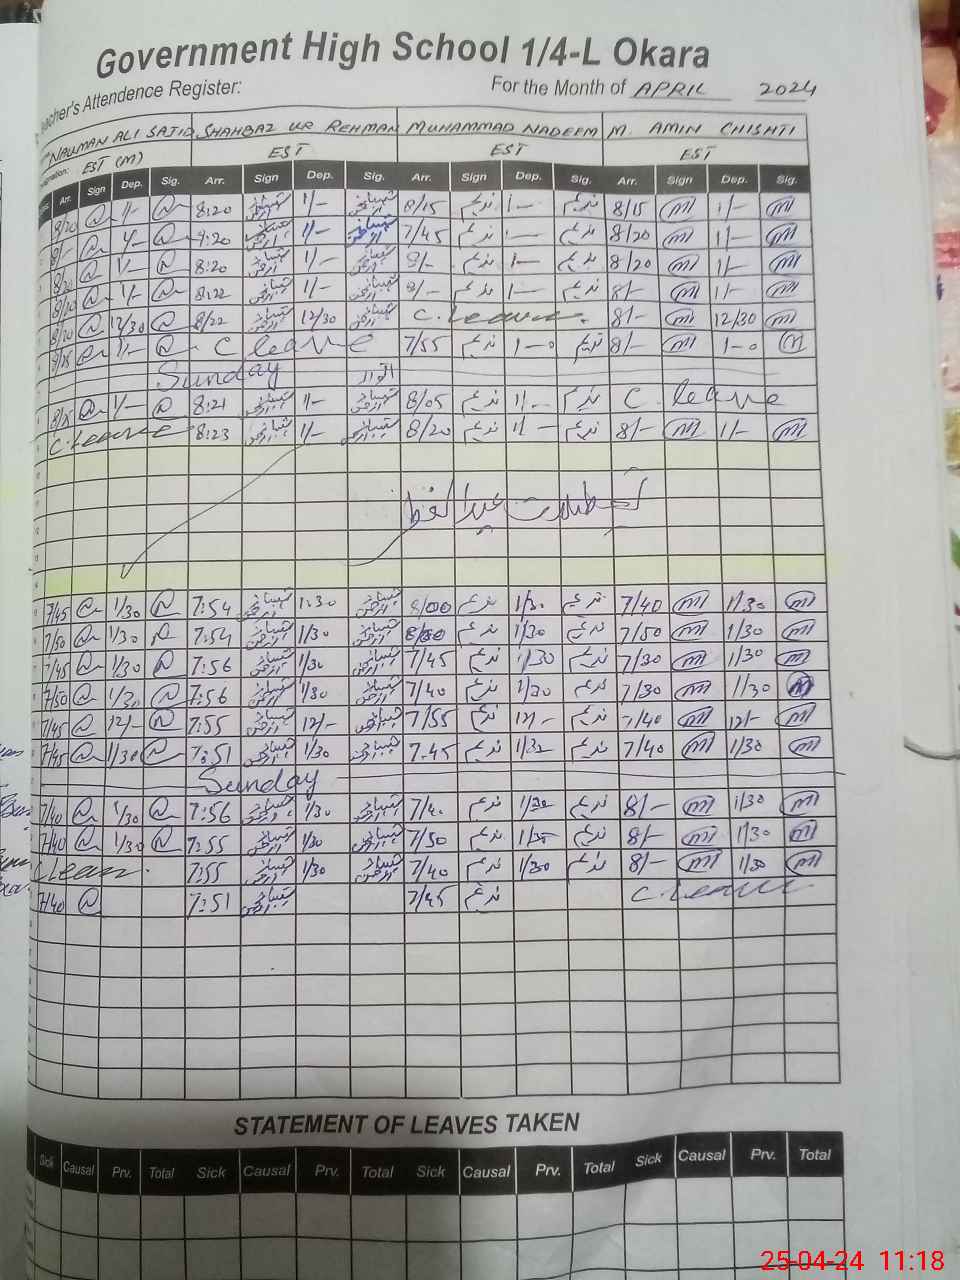 Government High School 1/4-L Okara
Teacher's Attendence Register: For the Month of APRIL 2024
NAUMAN ALI SAJID SHAHBAZ UR REHMAN MUHAMMAD NADEEM M. AMIN CHISHTI
EST (M) EST EST EST
Arr. Sign Dep. Sig. Arr. Sign Dep. Sig. Arr. Sign Dep. Sig. Arr. Sign Dep. Sig.
8/20 1/- 8:20 شہباز الرحمن 1/- شہباز الرحمن 8/15 ندیم 1- ندیم 8/15 M 1/- M
8/- 1/- 8:20 شہباز الرحمن 1/- شہباز الرحمن 7/45 ندیم 1- ندیم 8/20 M 1/- M
8/20 1/- 8:20 شہباز الرحمن 1/- شہباز الرحمن 8/- ندیم 1- ندیم 8/20 M 1/- M
8/20 1/- 8:22 شہباز الرحمن 1/- شہباز الرحمن 8/- ندیم 1- ندیم 8/- M 1/- M
8/20 12/30 8/22 شہباز الرحمن 12/30 شہباز الرحمن C. Leave. 8/- M 12/30 M
8/25 1/- C leave 7/55 ندیم 1-0 ندیم 8/- M 1-0 M
Sunday اتوار
8/25 1/- 8:21 شہباز الرحمن 1/- شہباز الرحمن 8/05 ندیم 1/- ندیم C. leave
C. Leave 8:23 شہباز الرحمن 1/- شہباز الرحمن 8/20 ندیم 1/- ندیم 8/- M 1/- M
تعطیلات عید الفطر
7/45 1/30 7:54 شہباز الرحمن 1:30 شہباز الرحمن 8/00 ندیم 1/30 ندیم 7/40 M 1/30 M
7/50 1/30 7:54 شہباز الرحمن 1/30 شہباز الرحمن 8/00 ندیم 1/30 ندیم 7/50 M 1/30 M
7/45 1/30 7:56 شہباز الرحمن 1/30 شہباز الرحمن 7/45 ندیم 1/30 ندیم 7/30 M 1/30 M
7/50 1/30 7:56 شہباز الرحمن 1/30 شہباز الرحمن 7/40 ندیم 1/30 ندیم 7/30 M 1/30 M
7/45 12/- 7:55 شہباز الرحمن 12/- شہباز الرحمن 7/55 ندیم 12/- ندیم 7/40 M 12/- M
7/45 1/30 7:51 شہباز الرحمن 1/30 شہباز الرحمن 7.45 ندیم 1/30 ندیم 7/40 M 1/30 M
Sunday
7/40 1/30 7:56 شہباز الرحمن 1/30 شہباز الرحمن 7/40 ندیم 1/30 ندیم 8/- M 1/30 M
7/40 1/30 7:55 شہباز الرحمن 1/30 شہباز الرحمن 7/50 ندیم 1/30 ندیم 8/- M 1/30 M
C Leave. 7:55 شہباز الرحمن 1/30 شہباز الرحمن 7/40 ندیم 1/30 ندیم 8/- M 1/30 M
7/40 7:51 شہباز الرحمن 7/45 ندیم C. Leave
STATEMENT OF LEAVES TAKEN
Sick Causal Prv. Total Sick Causal Prv. Total Sick Causal Prv. Total Sick Causal Prv. Total
25-04-24 11:18